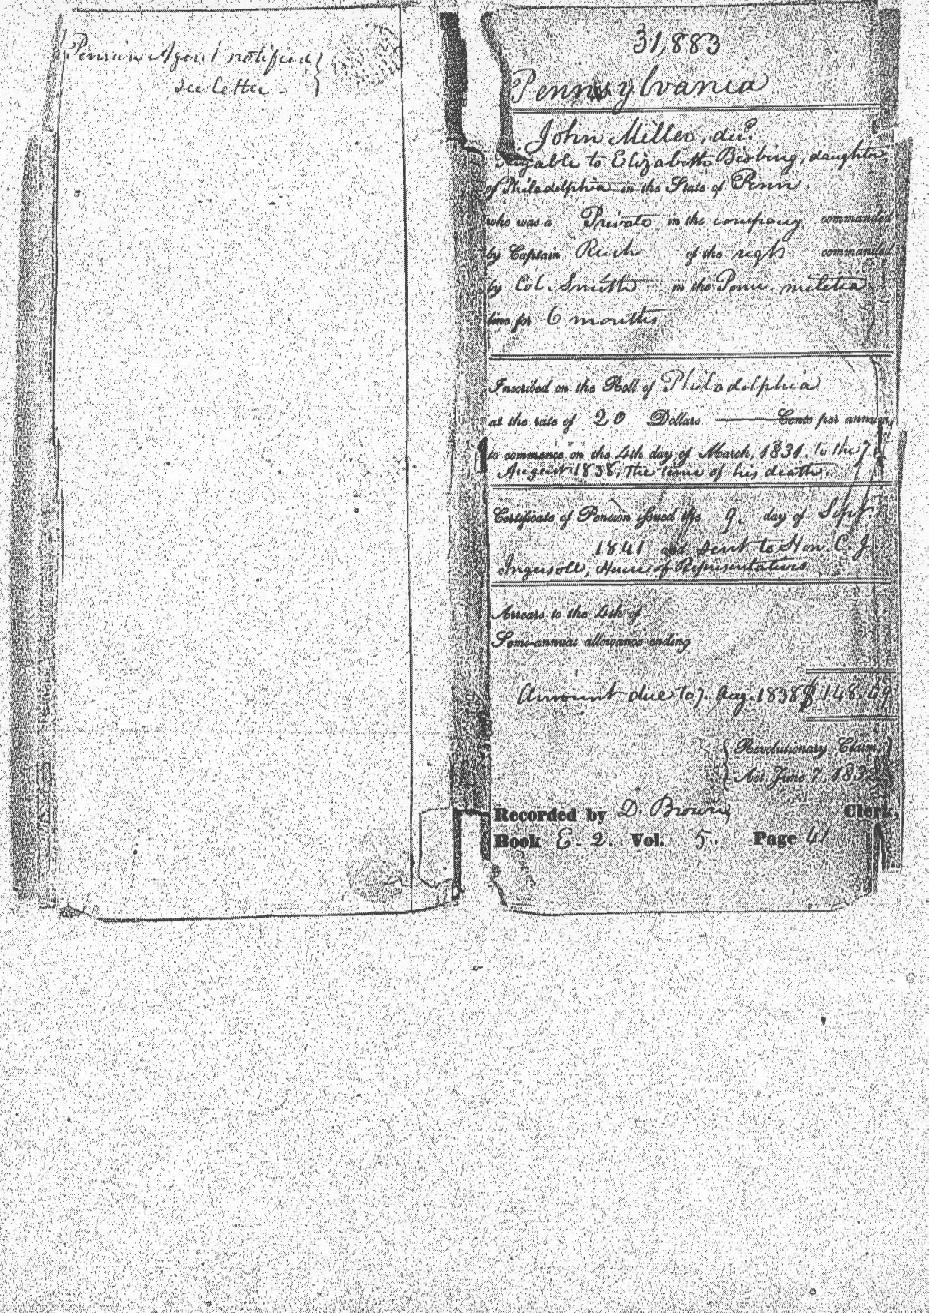 Pension Agent notified
see letter.
31,883
Pennsylvania
John Miller, decd.
Payable to Elizabeth Bisbing, daughter
of Philadelphia in the State of Penn
who was a Private in the company commanded
by Captain of the regt commanded
by Col. Smith in the Penn. militia
line for 6 months
Inscribed on the Roll of Philadelphia
at the rate of 20 Dollars Cents per annum,
to commence on the 4th day of March, 1831. to the 7
August 1838, the time of his death.
Certificate of Pension issued the 9. day of Sept
1841 and sent to Hon. C. J.
Ingersoll, House of Representatives
Arrears to the 4th of
Semi-annual allowance ending
Amount due to 7. Aug. 1838 $148.
Revolutionary Claim,
Act June 7, 1832
Recorded by D. Brown Clerk,
Book E. 2. Vol. 5. Page 41